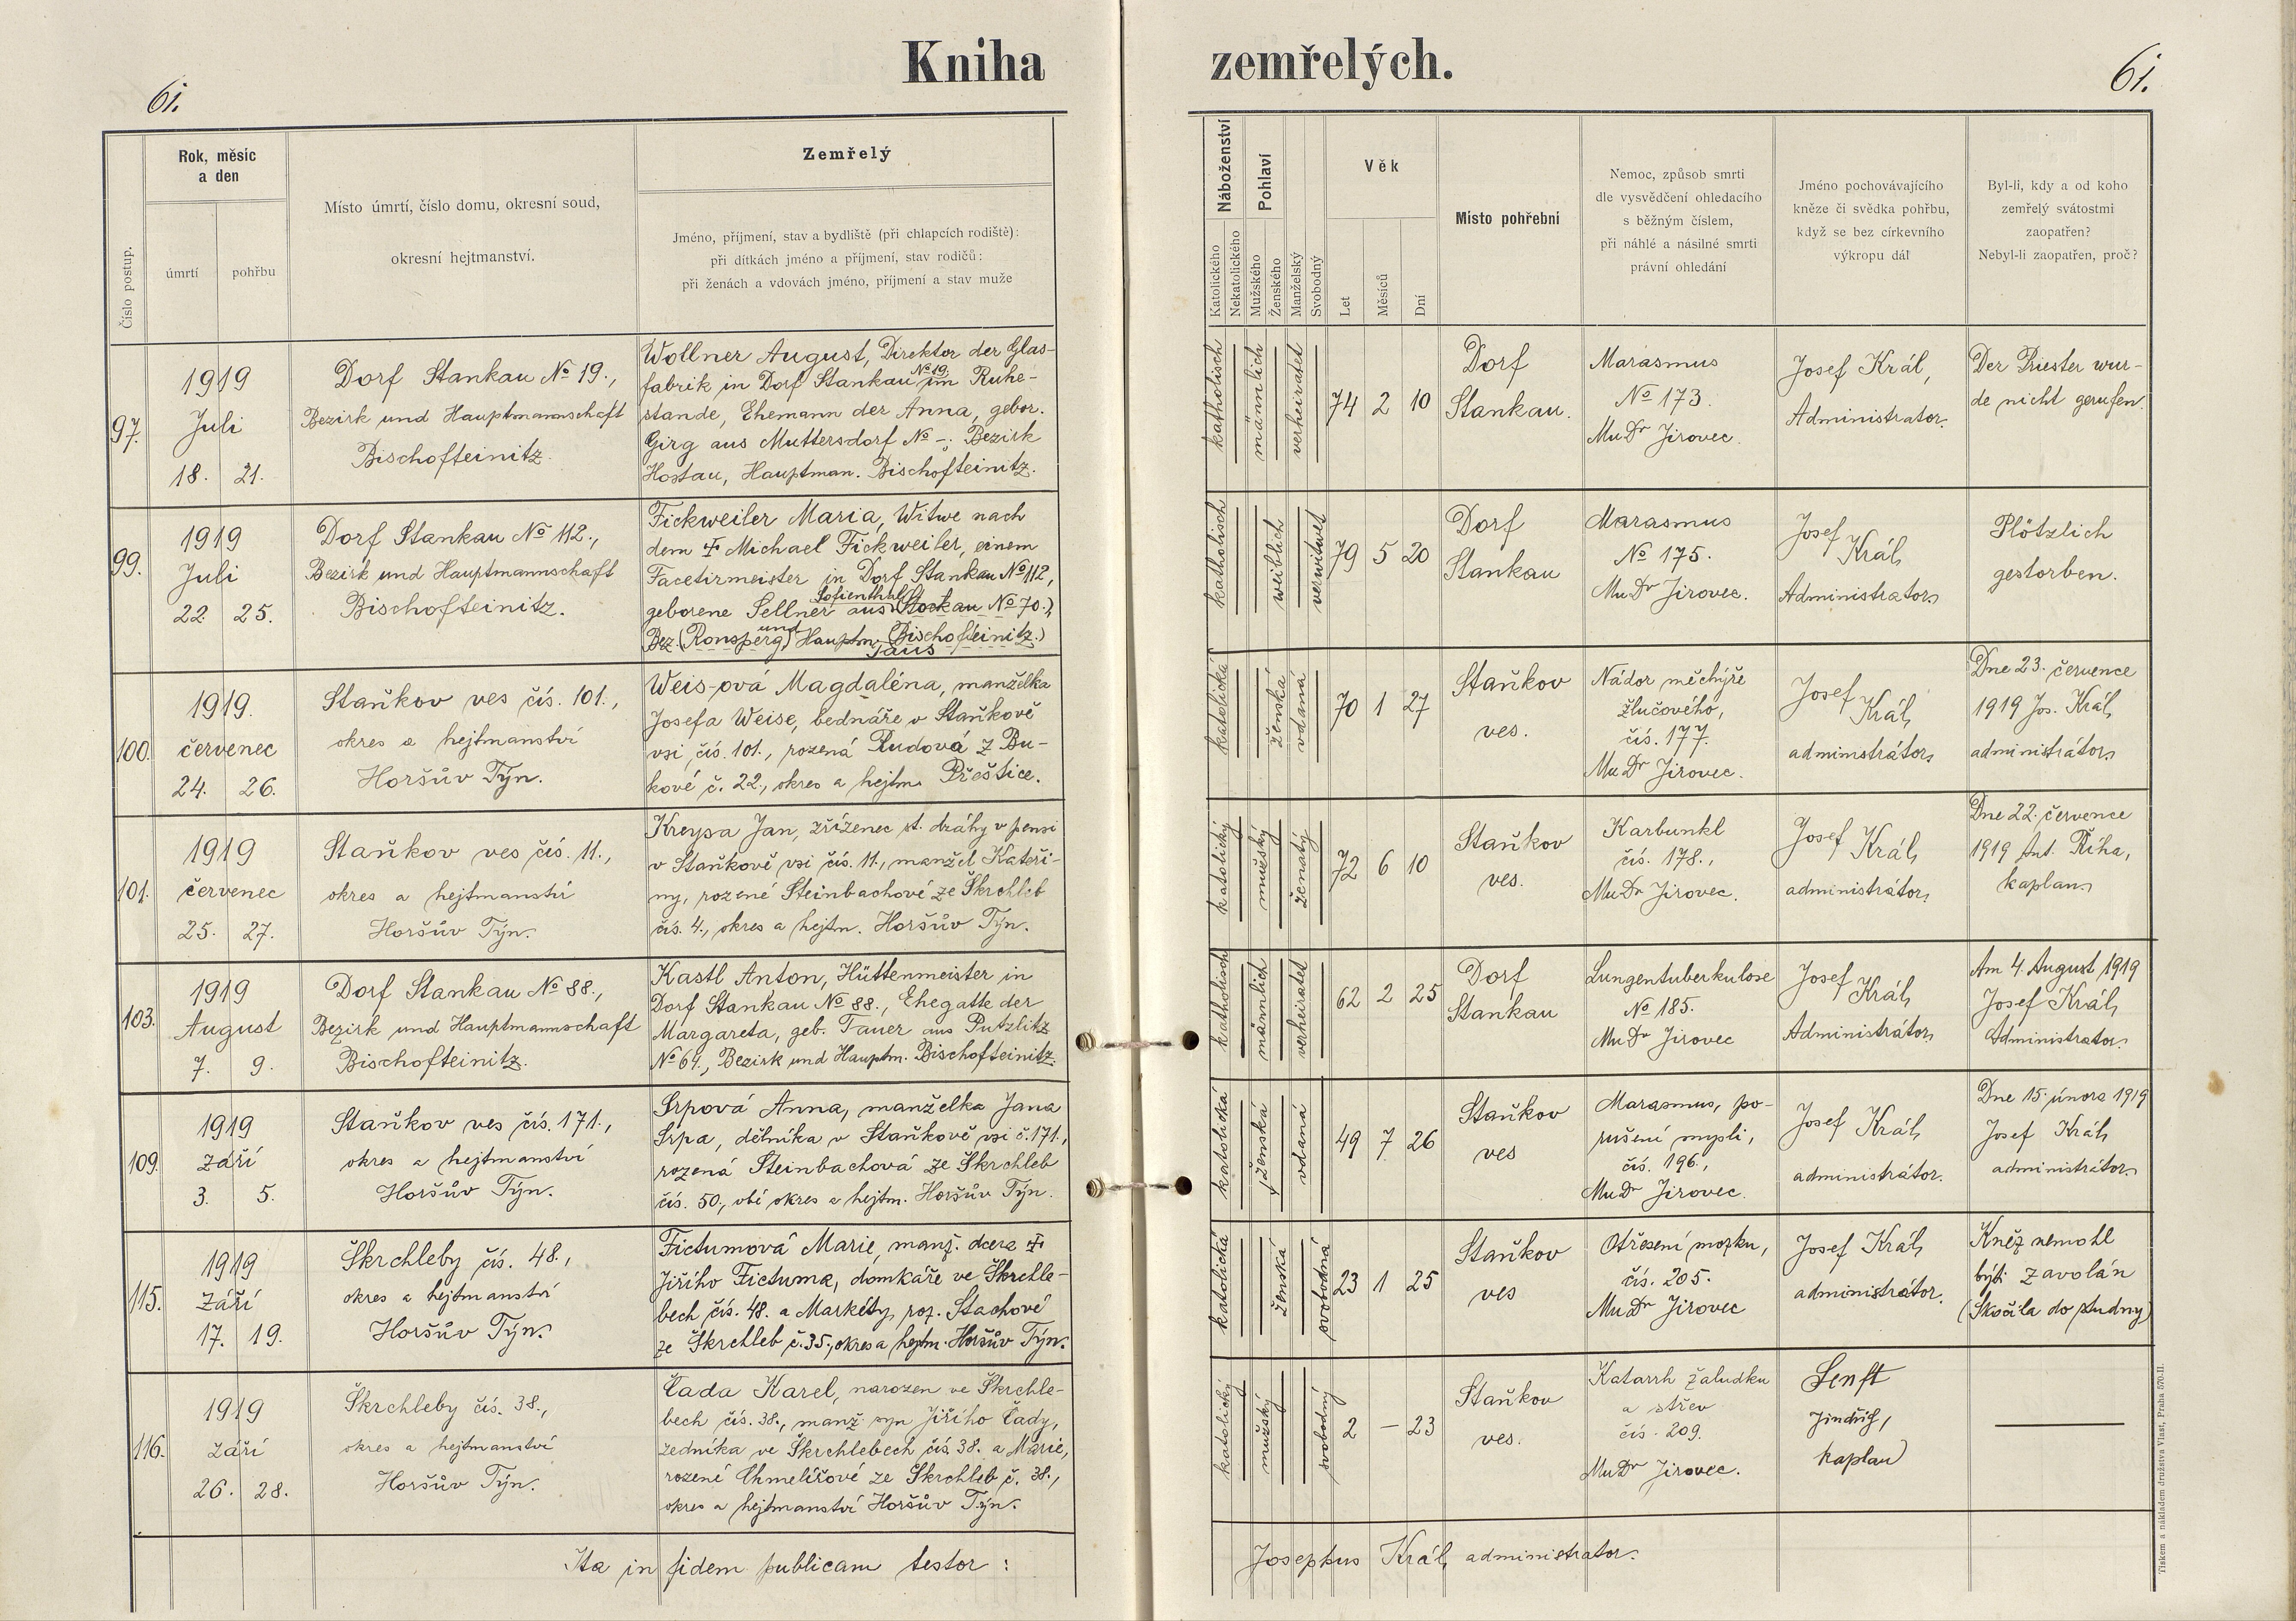 Kniha zemřelých.
61.
61.
Číslo postup.
Rok, měsíc
a den
úmrtí
pohřbu
Místo úmrtí, číslo domu, okresní soud,
okresní hejtmanství.
Zemřelý
Jméno, příjmení, stav a bydliště (při chlapcích rodiště):
při dítkách jméno a příjmení, stav rodičů:
při ženách a vdovách jméno, příjmení a stav muže
Náboženství
Katolického
Nekatolického
Pohlaví
Mužského
Ženského
Manželský
Svobodný
Věk
Let
Měsíců
Dní
Místo pohřební
Nemoc, způsob smrti
dle vysvědčení ohledacího
s běžným číslem,
při náhlé a násilné smrti
právní ohledání
Jméno pochovávajícího
kněze či svědka pohřbu,
když se bez církevního
výkropu dál
Byl-li, kdy a od koho
zemřelý svátostmi
zaopatřen?
Nebyl-li zaopatřen, proč?
97.
1919
Juli
18. 21.
Dorf Stankau No 19.,
Bezirk und Hauptmannschaft
Bischofteinitz.
Wollner August, Direktor der Glas-
fabrik in Dorf Stankau No 19. im Ruhe-
stande, Ehemann der Anna, gebor.
Girg aus Muttersdorf No -; Bezirk
Hostau, Hauptman. Bischofteinitz.
katholisch
männlich
verheiratet
74 2 10
Dorf
Stankau.
Marasmus
No 173.
MuDr Jirovec.
Josef Král,
Administrator.
Der Priester wur-
de nicht gerufen.
99.
1919
Juli
22. 25.
Dorf Stankau No 112.,
Bezirk und Hauptmannschaft
Bischofteinitz.
Fickweiler Maria, Witwe nach
dem ┼ Michael Fickweiler, einem
Facetirmeister in Dorf Stankau No 112,
Sofienthal
geborene Sellner aus (Stockau No 70.),
Bez. (Ronsperg) und Hauptm. (Bischofteinitz.)
Taus
katholisch
weiblich
verwitwet
79 5 20
Dorf
Stankau
Marasmus
No 175.
MuDr Jirovec.
Josef
Král,
Administrator
Plötzlich
gestorben.
100.
1919.
červenec
24. 26.
Staňkov ves čís. 101.,
okres a hejtmanství
Horšův Týn.
Weis-ová Magdaléna, manželka
Josefa Weise, bednáře v Staňkově
vsi čís. 101., rozená Rudová z Bu-
kové č. 22., okres a hejtm. Přeštice.
katolická
ženská
vdaná
70 1 27
Staňkov
ves.
Nádor měchýře
žlučového,
čís. 177.
MuDr Jirovec.
Josef
Král,
administrátor
Dne 23. července
1919 Jos. Král,
administrátor
101.
1919
červenec
25. 27.
Staňkov ves čís. 11.,
okres a hejtmanství
Horšův Týn.
Kreysa Jan, zřízenec st. dráhy v pensi
v Staňkově vsi čís. 11., manžel Kateři-
ny, rozené Steinbachové ze Škrchleb
čís. 4., okres a hejtm. Horšův Týn.
katolický
mužský
ženatý
72 6 10
Staňkov
ves.
Karbunkl
čís. 178.,
MuDr Jirovec.
Josef
Král,
administrátor
Dne 22. července
1919 Ant. Říha,
kaplan
103.
1919
August
7. 9.
Dorf Stankau No 88.,
Bezirk und Hauptmannschaft
Bischofteinitz.
Kastl Anton, Hüttenmeister in
Dorf Stankau No 88., Ehegatte der
Margareta, geb. Tauer aus Putzlitz
No 64., Bezirk und Hauptm. Bischofteinitz.
katholisch
männlich
verheiratet
62 2 25
Dorf
Stankau
Lungentuberkulose
No 185.
MuDr Jirovec
Josef
Král,
Administrátor
Am 4. August 1919
Josef Král,
Administrator
109.
1919
září
3. 5.
Staňkov ves čís. 171.,
okres a hejtmanství
Horšův Týn.
Srpová Anna, manželka Jana
Srpa, dělníka v Staňkově vsi č. 171.,
rozená Steinbachová ze Škrchleb
čís. 50., obé okres a hejtm. Horšův Týn.
katolická
ženská
vdaná
49 7 26
Staňkov
ves
Marasmus, po-
rušení mysli,
čís. 196.,
MuDr Jirovec.
Josef Král,
administrátor.
Dne 15. února 1919
Josef Král,
administrátor
115.
1919
září
17. 19.
Škrchleby čís. 48.,
okres a hejtmanství
Horšův Týn.
Fictumová Marie, manž. dcera ┼
Jiřího Fictuma, domkáře ve Škrchle-
bech čís. 48. a Markéty, roz. Stachové
ze Škrchleb č. 35., okres a hejtm. Horšův Týn.
katolická
ženská
svobodná
23 1 25
Staňkov
ves
Otřesení mozku,
čís. 205.
MuDr Jirovec
Josef Král,
administrátor.
Kněz nemohl
býti zavolán
(Skočila do studny)
116.
1919
září
26. 28.
Škrchleby čís. 38.,
okres a hejtmanství
Horšův Týn.
Čada Karel, narozen ve Škrchle-
bech čís. 38., manž. syn Jiřího Čady,
zedníka ve Škrchlebech čís. 38. a Marie,
rozené Chmelířové ze Škrchleb č. 38.,
okres a hejtmanství Horšův Týn.
katolický
mužský
svobodný
2 — 23
Staňkov
ves.
Katarrh žaludku
a střev
čís. 209.
MuDr Jirovec.
Senft
Jindřich,
kaplan
Ita in fidem publicam testor :
Josephus Král, administrator.
Tiskem a nákladem družstva Vlast, Praha 570-II.